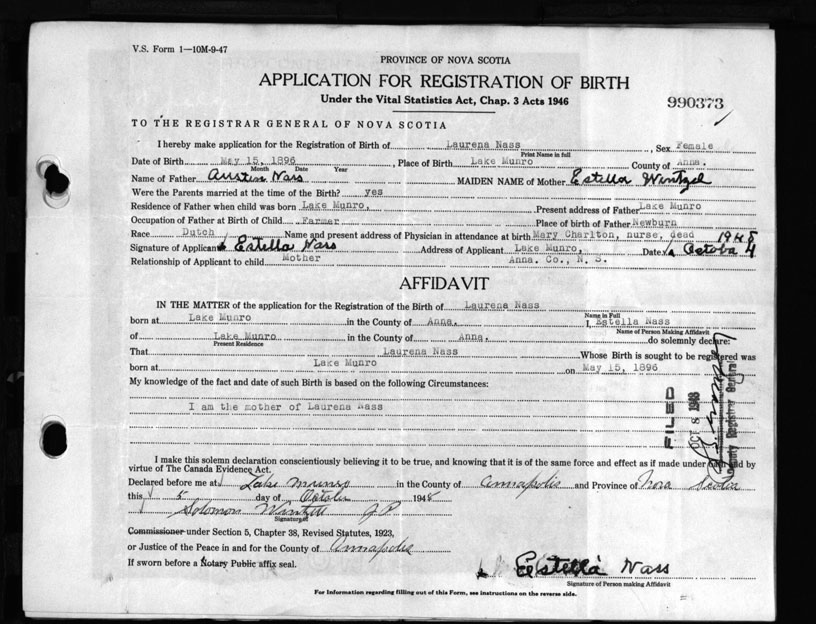 V.S. Form 1—10M-9-47
PROVINCE OF NOVA SCOTIA
APPLICATION FOR REGISTRATION OF BIRTH
Under the Vital Statistics Act, Chap. 3 Acts 1946
990373
TO THE REGISTRAR GENERAL OF NOVA SCOTIA
I hereby make application for the Registration of Birth of Laurena Nass, Sex Female
Print Name in full
Date of Birth May 15, 1896, Place of Birth Lake Munro County of Anna.
Month Date Year
Name of Father Austin Nass MAIDEN NAME of Mother Estella Wintzel
Were the Parents married at the time of the Birth? yes
Residence of Father when child was born Lake Munro, Present address of Father Lake Munro
Occupation of Father at Birth of Child Farmer Place of birth of Father Newburn
Race Dutch Name and present address of Physician in attendance at birth Mary Charlton, nurse, dead 1948
Signature of Applicant Estella Nass Address of Applicant Lake Munro, Date October 4
Relationship of Applicant to child Mother Anna. Co., N. S.
AFFIDAVIT
IN THE MATTER of the application for the Registration of the Birth of Laurena Nass
Name in Full
born at Lake Munro in the County of Anna. I, Estella Nass
Name of Person Making Affidavit
of Lake Munro in the County of Anna. do solemnly declare:
Present Residence
That Laurena Nass Whose Birth is sought to be registered was
born at Lake Munro on May 15, 1896
My knowledge of the fact and date of such Birth is based on the following Circumstances:
I am the mother of Laurena Nass
FILED
OCT 8 1948
Deputy Registrar General
I make this solemn declaration conscientiously believing it to be true, and knowing that it is of the same force and effect as if made under oath and by
virtue of The Canada Evidence Act.
Declared before me at Lake Munro in the County of Annapolis and Province of Nova Scotia
this 5 day of October 1948
Solomon Wintzell J.P.
Signature
Commissioner under Section 5, Chapter 38, Revised Statutes, 1923,
or Justice of the Peace in and for the County of Annapolis
If sworn before a Notary Public affix seal.
Estella Nass
Signature of Person making Affidavit
For Information regarding filling out of this Form, see instructions on the reverse side.